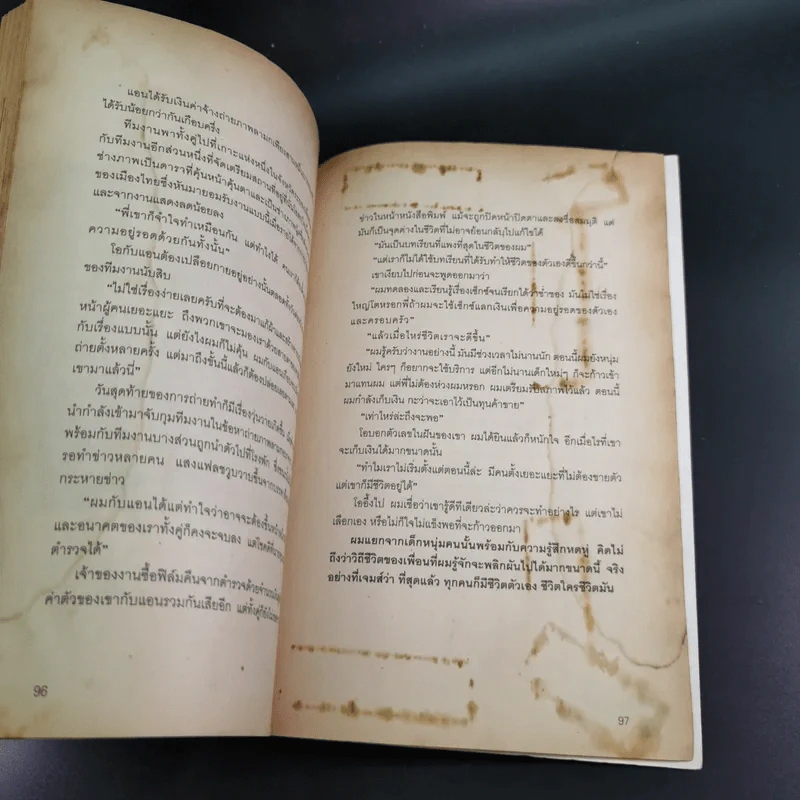 แอนได้รับเงินค่าจ้างถ่ายภาพลามก
ได้รับน้อยกว่ากันเกือบครึ่ง
ทีมงานพาทั้งคู่ไปที่เกาะแห่งหนึ่งในจังหวัด
กับทีมงานอีกส่วนหนึ่งที่จัดเตรียมสถานที่อยู่ที่นั่น
ช่างภาพเป็นดาราที่คุ้นหน้าคุ้นตาและเป็น
ของเมืองไทยซึ่งหันมายอมรับงานแบบนี้เมื่อรายได้
และจากงานแสดงลดน้อยลง
"พี่เขาก็จำใจทำเหมือนกัน แต่ทำไงได้
ความอยู่รอดด้วยกันทั้งนั้น"
โอกับแอนต้องเปลือยกายอยู่อย่างนั้นตลอดทั้งวัน
ของทีมงานนับสิบ
"ไม่ใช่เรื่องง่ายเลยครับที่จะต้องมาแก้ผ้า
หน้าผู้คนเยอะแยะ ถึงพวกเขาจะมองเราด้วยสายตา
กับเรื่องแบบนั้น แต่ยังไงผมก็ไม่คุ้น ผมกับแอน
ถ่ายตั้งหลายครั้ง แต่มาถึงขั้นนี้แล้วก็ต้องปล่อย
เขามาแล้วนี่"
วันสุดท้ายของการถ่ายทำก็มีเรื่องวุ่นวายเกิดขึ้น
นำกำลังเข้ามาจับกุมทีมงานในข้อหาถ่ายภาพลามก
พร้อมกับทีมงานบางส่วนถูกนำตัวไปที่โรงพัก
รอทำข่าวหลายคน แสงแฟลชวูบวาบขึ้น
กระหายข่าว
"ผมกับแอนได้แต่ทำใจว่าอาจจะต้องขึ้น
และอนาคตของเราทั้งคู่ก็คงจะจบลง แต่โชคดีที่
ตำรวจได้"
เจ้าของงานซื้อฟิล์มคืนจากตำรวจด้วย
ค่าตัวของเขากับแอนรวมกันเสียอีก แต่ทั้งคู่ก็
96
ข่าวในหน้าหนังสือพิมพ์ แม้จะถูกปิดหน้าปิดตาและลงชื่อสมมุติ แต่
มันก็เป็นจุดด่างในชีวิตที่ไม่อาจย้อนกลับไปแก้ไขได้
"มันเป็นบทเรียนที่แพงที่สุดในชีวิตของผม"
"แต่เราก็ไม่ได้ใช้บทเรียนที่ได้รับทำให้ชีวิตของตัวเองดีขึ้นกว่านี้"
เขาเงียบไปก่อนจะพูดออกมาว่า
"ผมทดลองและเรียนรู้เรื่องเซ็กซ์จนเรียกได้ว่าช่ำชอง มันไม่ใช่เรื่อง
ใหญ่โตหรอกพี่ถ้าผมจะใช้เซ็กซ์แลกเงินเพื่อความอยู่รอดของตัวเอง
และครอบครัว"
"แล้วเมื่อไหร่ชีวิตเราจะดีขึ้น"
"ผมรู้ครับว่างานอย่างนี้ มันมีช่วงเวลาไม่นานนัก ตอนนี้ผมยังหนุ่ม
ยังใหม่ ใครๆ ก็อยากจะใช้บริการ แต่อีกไม่นานเด็กใหม่ๆ ก็จะก้าวเข้า
มาแทนผม แต่พี่ไม่ต้องห่วงผมหรอก ผมเตรียมรับสภาพไว้แล้ว ตอนนี้
ผมกำลังเก็บเงิน กะว่าจะเอาไว้เป็นทุนค้าขาย"
"เท่าไหร่ล่ะถึงจะพอ"
โอบอกตัวเลขในฝันของเขา ผมได้ยินแล้วก็หนักใจ อีกเมื่อไรที่เขา
จะเก็บเงินได้มากขนาดนั้น
"ทำไมเราไม่เริ่มตั้งแต่ตอนนี้ล่ะ มีคนตั้งเยอะแยะที่ไม่ต้องขายตัว
แต่เขาก็มีชีวิตอยู่ได้"
โออึ้งไป ผมเชื่อว่าเขารู้ดีทีเดียวล่ะว่าควรจะทำอย่างไร แต่เขาไม่
เลือกเอง หรือไม่ก็ใจไม่แข็งพอที่จะก้าวออกมา
ผมแยกจากเด็กหนุ่มคนนั้นพร้อมกับความรู้สึกหดหู่ คิดไม่
ถึงว่าวิถีชีวิตของเพื่อนที่ผมรู้จักจะพลิกผันไปได้มากขนาดนี้ จริง
อย่างที่เจมส์ว่า ที่สุดแล้ว ทุกคนก็มีชีวิตตัวเอง ชีวิตใครชีวิตมัน
97